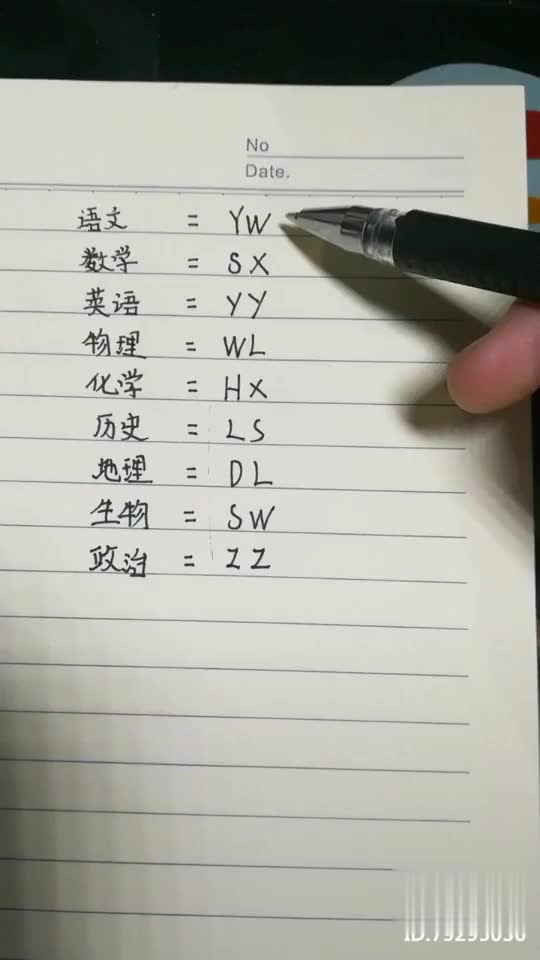 No
Date.
语文 = YW
数学 = SX
英语 = YY
物理 = WL
化学 = HX
历史 = LS
地理 = DL
生物 = SW
政治 = ZZ